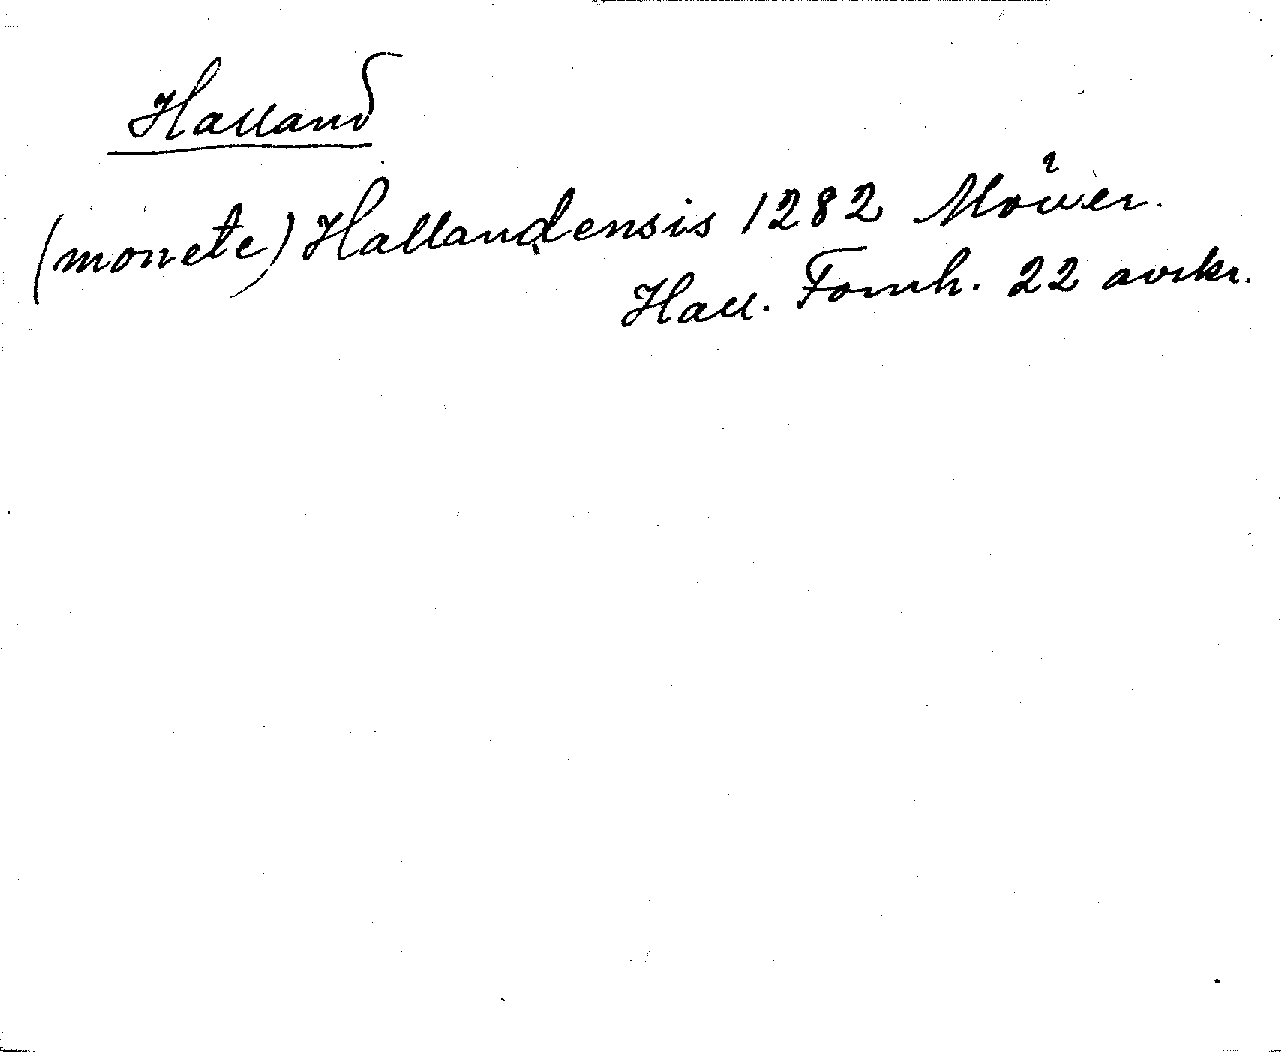 Halland
(monete) Hallandensis 1282 Möwer.
Hall. Fornh. 22 avskr.